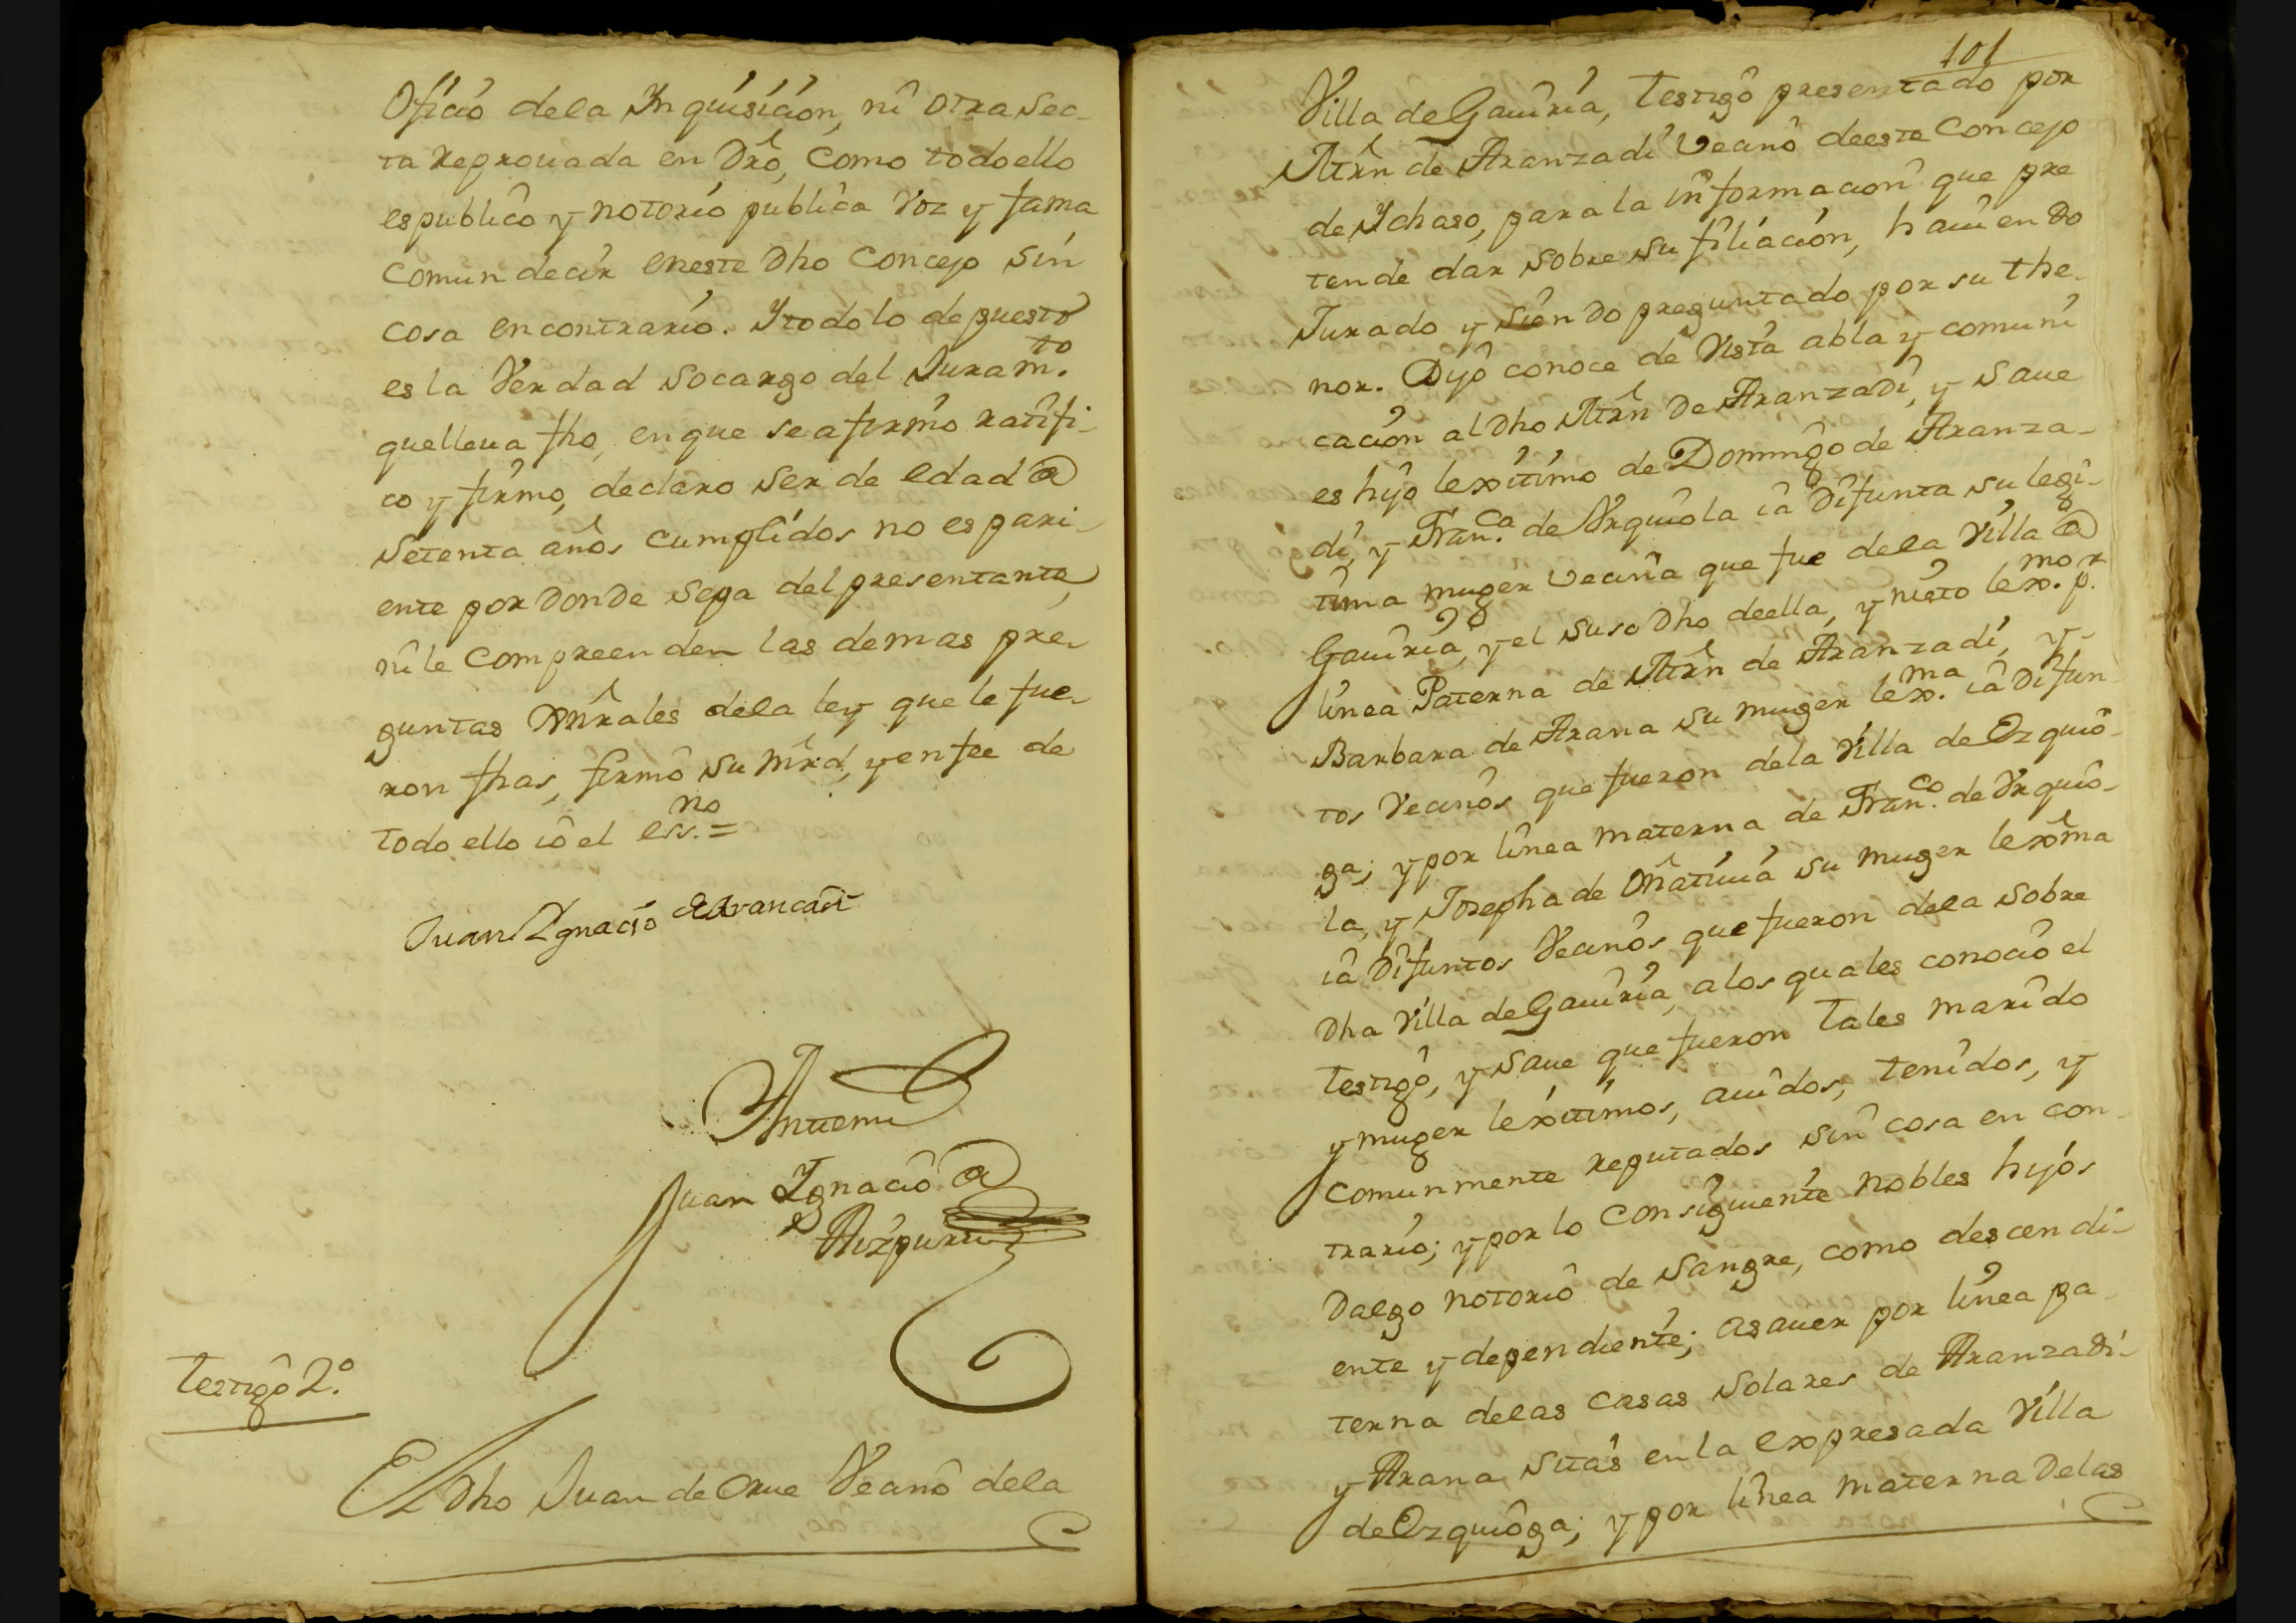 Oficio dela Ynquisicion, ni otra Sec-
ta Reprouada en Dro, como todo ello
es publico y notorio publica Voz y fama
comun decir eneste Dho Concejo sin
cosa en contrario. Y todo lo depuesto
es la Verdad socargo del Juram.to
quelleua fho, en que se afirmo ratifi-
co y firmo, declaro ser de edad @
setenta años cumplidos no es pari-
ente por donde sepa del presentante,
ni le compreenden las demas pre-
guntas xnrales dela ley que le fue-
ron fhas, firmo su mrd, y en fee de
todo ello io el ess.no =
Juan Ygnacio
Antemi
Juan Ygnacio @
Aizpuru
Testigo 2.o
El Dho Juan de Orue Vecino dela
101
Villa de Gauiria, testigo presentado por
Mrn de Aranzadi Vecino deeste Concejo
de Ychaso, para la informacion que pre
tende dar sobre su filiacion, hauiendo
Jurado y siendo preguntado por su the-
nor. Dijo conoce de Vista abla y comuni
cacion al Dho Mrn De Aranzadi, y saue
es hijo lexitimo de Domingo de Aranza-
di, y Fran.ca de Vrquiola ia Difunta su legi-
tima muger Vecina que fue dela Villa @
Gauiria, y el suso Dho deella, y nieto lex.mo p.r
linea Paterna de Mrn de Aranzadi, y
Barbara de Arana su muger lex.ma ia Difun
tos Vecinos que fueron dela Villa de Ozquio-
ga; y por linea materna de Fran.co de Vrquio-
la, y Josepha de Oñatiuia su muger lexma
ia Difuntos Vecinos que fueron dela sobre
Dha Villa de Gauiria, alos quales conocio el
testigo, y saue que fueron tales marido
y muger lexitimos, auidos, tenidos, y
comunmente reputados sin cosa en con-
trario; y por lo consiguiente nobles hijos
Dalgo notorio de sangre, como descendi-
ente y dependiente; asauer por linea pa-
terna delas casas solares de Aranzadi-
y Arana sitas en la expresada Villa
de Ozquioga; y por linea materna Delas